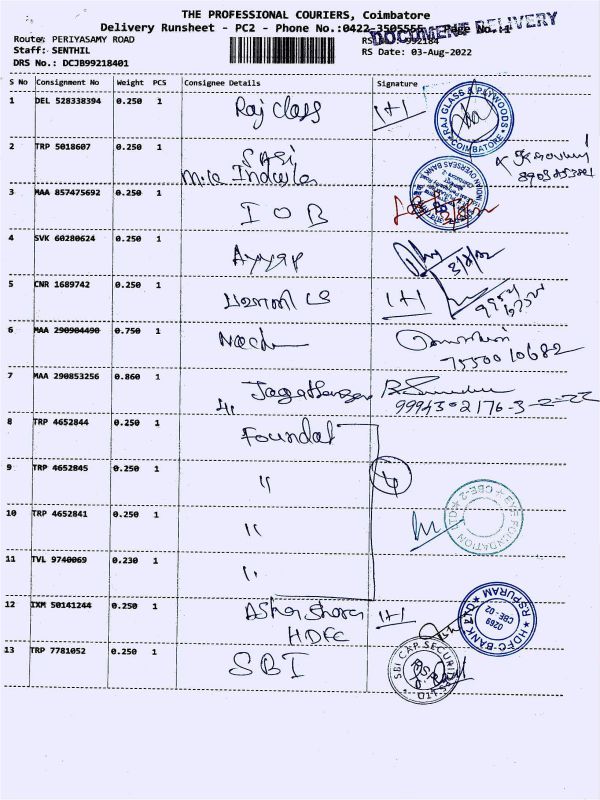 THE PROFESSIONAL COURIERS, Coimbatore
Delivery Runsheet - PC2 - Phone No.:0422-3505555 Page No.:1
DOCUMENT DELIVERY
Route: PERIYASAMY ROAD
Staff: SENTHIL
RS Date: 03-Aug-2022
DRS No.: DCJB99218401
S No Consignment No Weight PCS Consignee Details Signature
1 DEL 528338394 0.250 1 Raj Class 1+1
RAJ GLASS & PLYWOODS COIMBATORE
2 TRP 5018607 0.250 1 SASI
3 MAA 857475692 0.250 1 I O B
INDIAN OVERSEAS BANK
4 SVK 60280624 0.250 1 Ayyap
3/8/22
5 CNR 1689742 0.250 1 1+1
6 MAA 290904490 0.750 1
7550010682
7 MAA 290853256 0.860 1
8 TRP 4652844 0.250 1 Foundat
9 TRP 4652845 0.250 1 "
4
10 TRP 4652841 0.250 1 "
EVE FOUNDATION LTD CBE-2
11 TVL 9740069 0.230 1 "
12 IXM 50141244 0.250 1 1+1
HDFC
HDFC-BANK LTD RSPURAM 0269 CBE-02
13 TRP 7781052 0.250 1 SBI
SBI CAP SECURITIES LTD